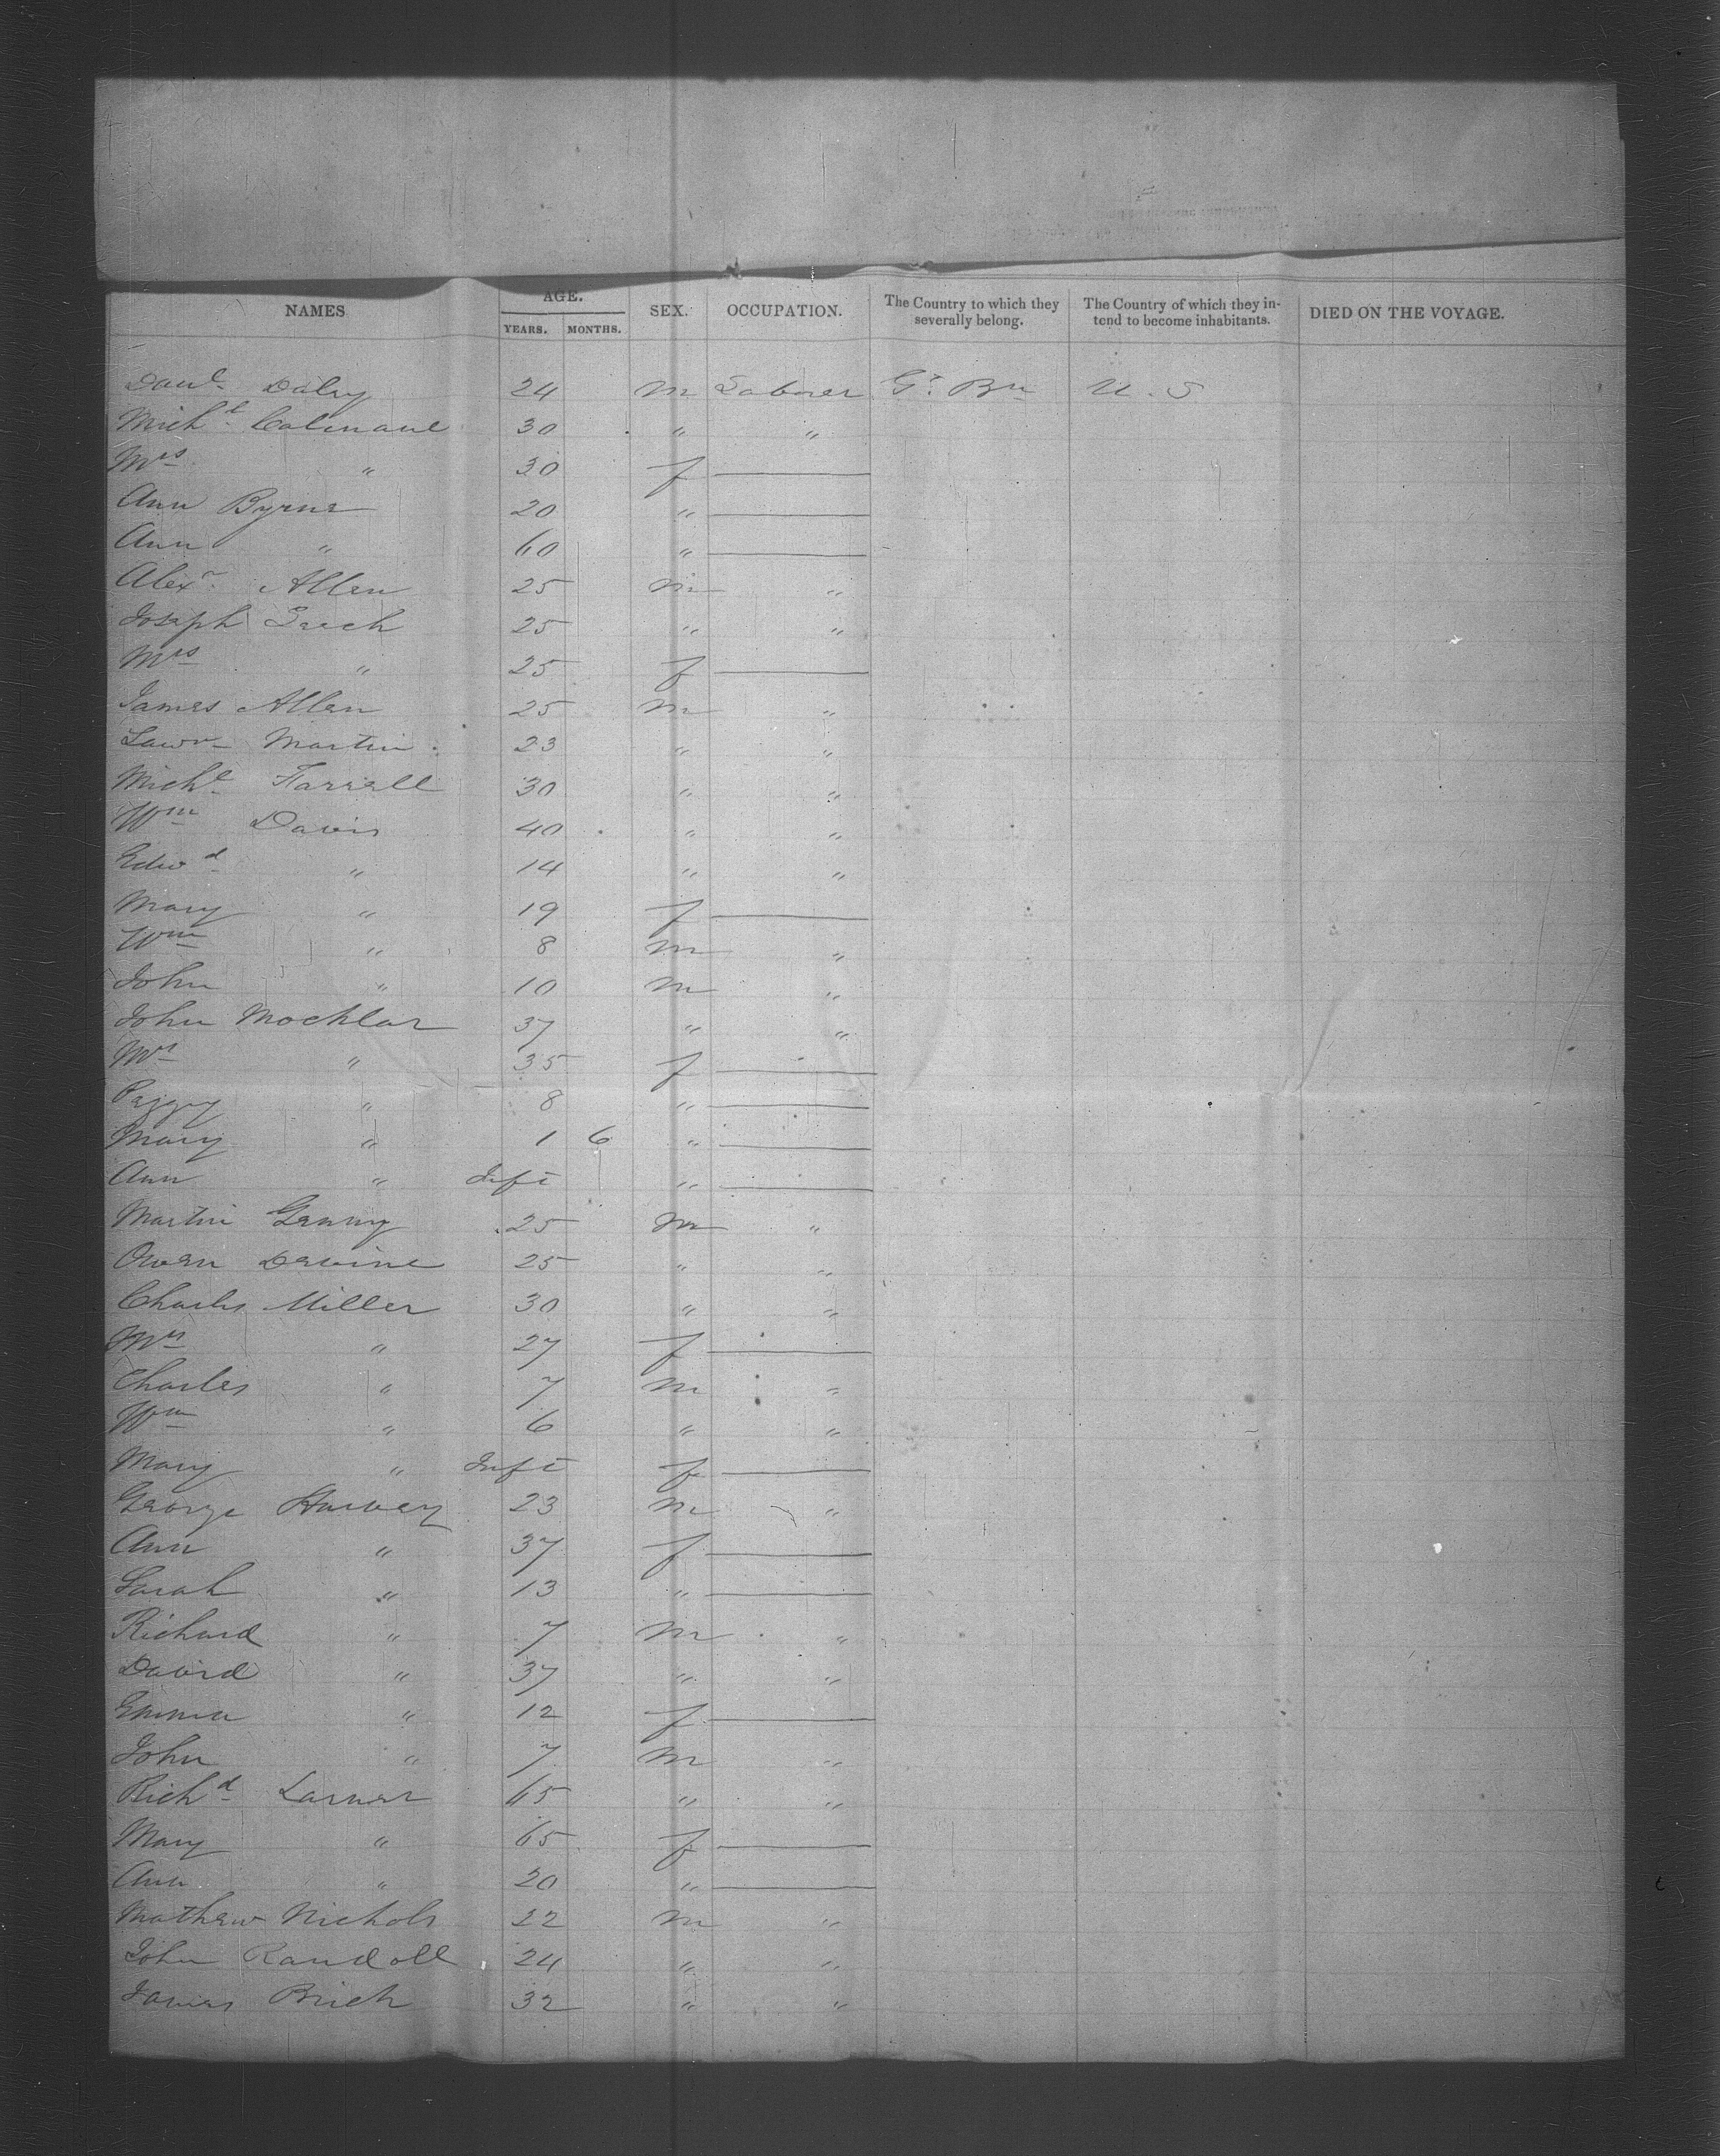 NAMES AGE. SEX. OCCUPATION. The Country to which they severally belong. The Country of which they intend to become inhabitants. DIED ON THE VOYAGE.
YEARS. MONTHS.
Danl Daley 24 m Laborer Gt. Bn U.S
Michl Calinane 30 " "
Mrs " 30 f
Ann Byrne 20 "
Ann " 60 "
Alexr Allen 25 m "
Joseph 25 " "
Mrs " 25 f
James Allen 25 m "
Lawr Martin 23 " "
Michl Farrell 30 " "
Wm Davis 40 " "
Edwd " 14 " "
Mary " 19 f
Wm " 8 m "
John " 10 m "
John Mochlar 37 " "
Mrs " 35 f
Peggy " 8 "
Mary " 1 6 "
Ann " Inft "
Martin 25 m "
Owen Devine 25 " "
Charles Miller 30 " "
Mrs " 27 f
Charles " 7 m "
Wm " 6 " "
Mary " Inft f
George Harvey 23 m "
Ann " 37 f
Sarah " 13 "
Richard " 7 m "
David " 37 " "
Emma " 12 f
John " 7 m "
Richd Larner 65 " "
Mary " 65 f
Ann " 20 "
Mathew Nichols 22 m "
John Randoll 24 " "
James Brich 32 " "